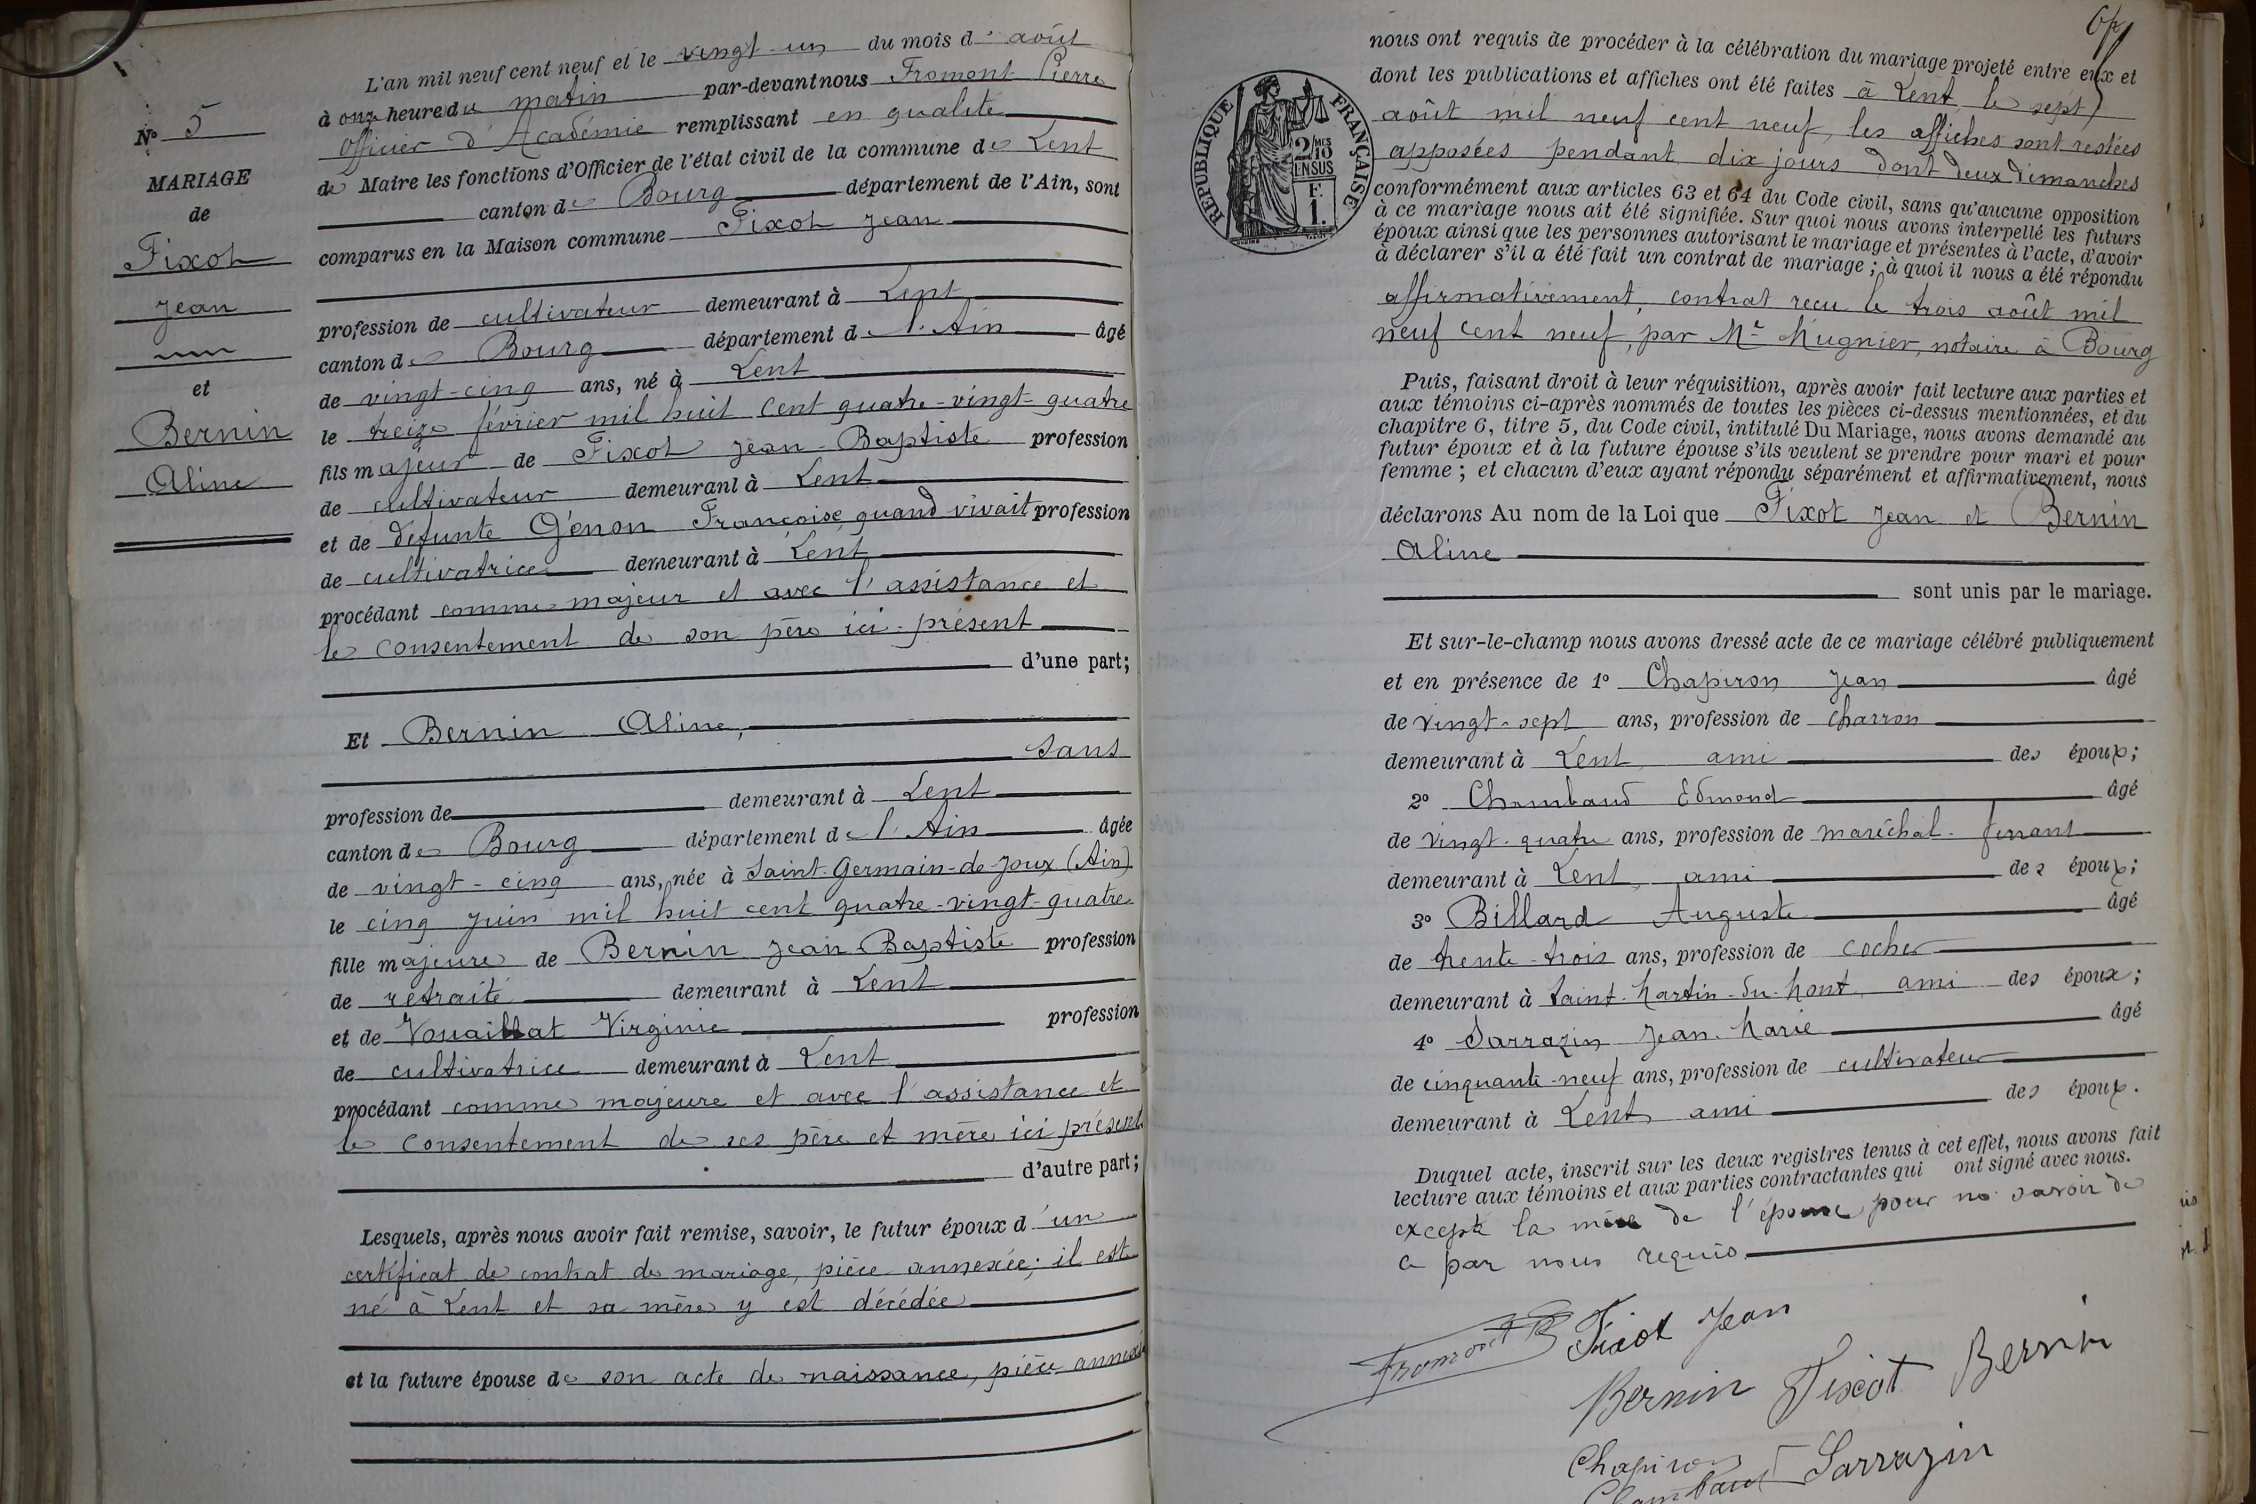 N° 5
MARIAGE
de
Fixot
Jean
et
Bernin
Aline
L'an mil neuf cent neuf et le vingt-un du mois d'août
à onze heure du matin par-devant nous Fromont Pierre
officier d'Académie remplissant en qualité
de Maire les fonctions d'Officier de l'état civil de la commune de Lent
canton de Bourg département de l'Ain, sont
comparus en la Maison commune Fixot Jean
profession de cultivateur demeurant à Lent
canton de Bourg département de l'Ain âgé
de vingt-cinq ans, né à Lent
le treize février mil huit cent quatre-vingt-quatre
fils majeur de Fixot Jean Baptiste profession
de cultivateur demeurant à Lent
et de défunte Génon Françoise, quand vivait profession
de cultivatrice demeurant à Lent
procédant comme majeur et avec l'assistance et
le consentement de son père ici-présent
d'une part;
Et Bernin Aline,
sans
profession de demeurant à Lent
canton de Bourg département de l'Ain âgée
de vingt-cinq ans, née à Saint-Germain-de-Joux (Ain)
le cinq juin mil huit cent quatre-vingt-quatre
fille majeure de Bernin Jean Baptiste profession
de retraité demeurant à Lent
et de Vouaillat Virginie profession
de cultivatrice demeurant à Lent
procédant comme majeure et avec l'assistance et
le consentement de ses père et mère ici présents
d'autre part;
Lesquels, après nous avoir fait remise, savoir, le futur époux d'un
certificat de contrat de mariage, pièce annexée; il est
né à Lent et sa mère y est décédée
et la future épouse de son acte de naissance, pièce annexée
RÉPUBLIQUE FRANÇAISE
2/10 MES
EN SUS
F.
1.
nous ont requis de procéder à la célébration du mariage projeté entre eux et
dont les publications et affiches ont été faites à Lent, le sept
août mil neuf cent neuf, les affiches sont restées
apposées pendant dix jours dont deux dimanches
conformément aux articles 63 et 64 du Code civil, sans qu'aucune opposition
à ce mariage nous ait été signifiée. Sur quoi nous avons interpellé les futurs
époux ainsi que les personnes autorisant le mariage et présentes à l'acte, d'avoir
à déclarer s'il a été fait un contrat de mariage; à quoi il nous a été répondu
affirmativement, contrat reçu le trois août mil
neuf cent neuf, par Me Mugnier, notaire à Bourg
Puis, faisant droit à leur réquisition, après avoir fait lecture aux parties et
aux témoins ci-après nommés de toutes les pièces ci-dessus mentionnées, et du
chapitre 6, titre 5, du Code civil, intitulé Du Mariage, nous avons demandé au
futur époux et à la future épouse s'ils veulent se prendre pour mari et pour
femme; et chacun d'eux ayant répondu séparément et affirmativement, nous
déclarons Au nom de la Loi que Fixot Jean et Bernin
Aline
sont unis par le mariage.
Et sur-le-champ nous avons dressé acte de ce mariage célébré publiquement
et en présence de 1° Chapiron Jean âgé
de vingt-sept ans, profession de charron
demeurant à Lent, ami des époux;
2° Chambaud Edmond âgé
de vingt-quatre ans, profession de maréchal-ferrant
demeurant à Lent, ami des époux;
3° Billard Auguste âgé
de trente-trois ans, profession de cocher
demeurant à Saint-Martin-du-Mont, ami des époux;
4° Sarrazin Jean-Marie âgé
de cinquante-neuf ans, profession de cultivateur
demeurant à Lent, ami des époux.
Duquel acte, inscrit sur les deux registres tenus à cet effet, nous avons fait
lecture aux témoins et aux parties contractantes qui ont signé avec nous.
excepté la mère de l'épouse pour ne savoir de
ce par nous requis
Fromont P Fixot Jean
Bernin Fixot Bernin
Chapiron
Chambaud Sarrazin